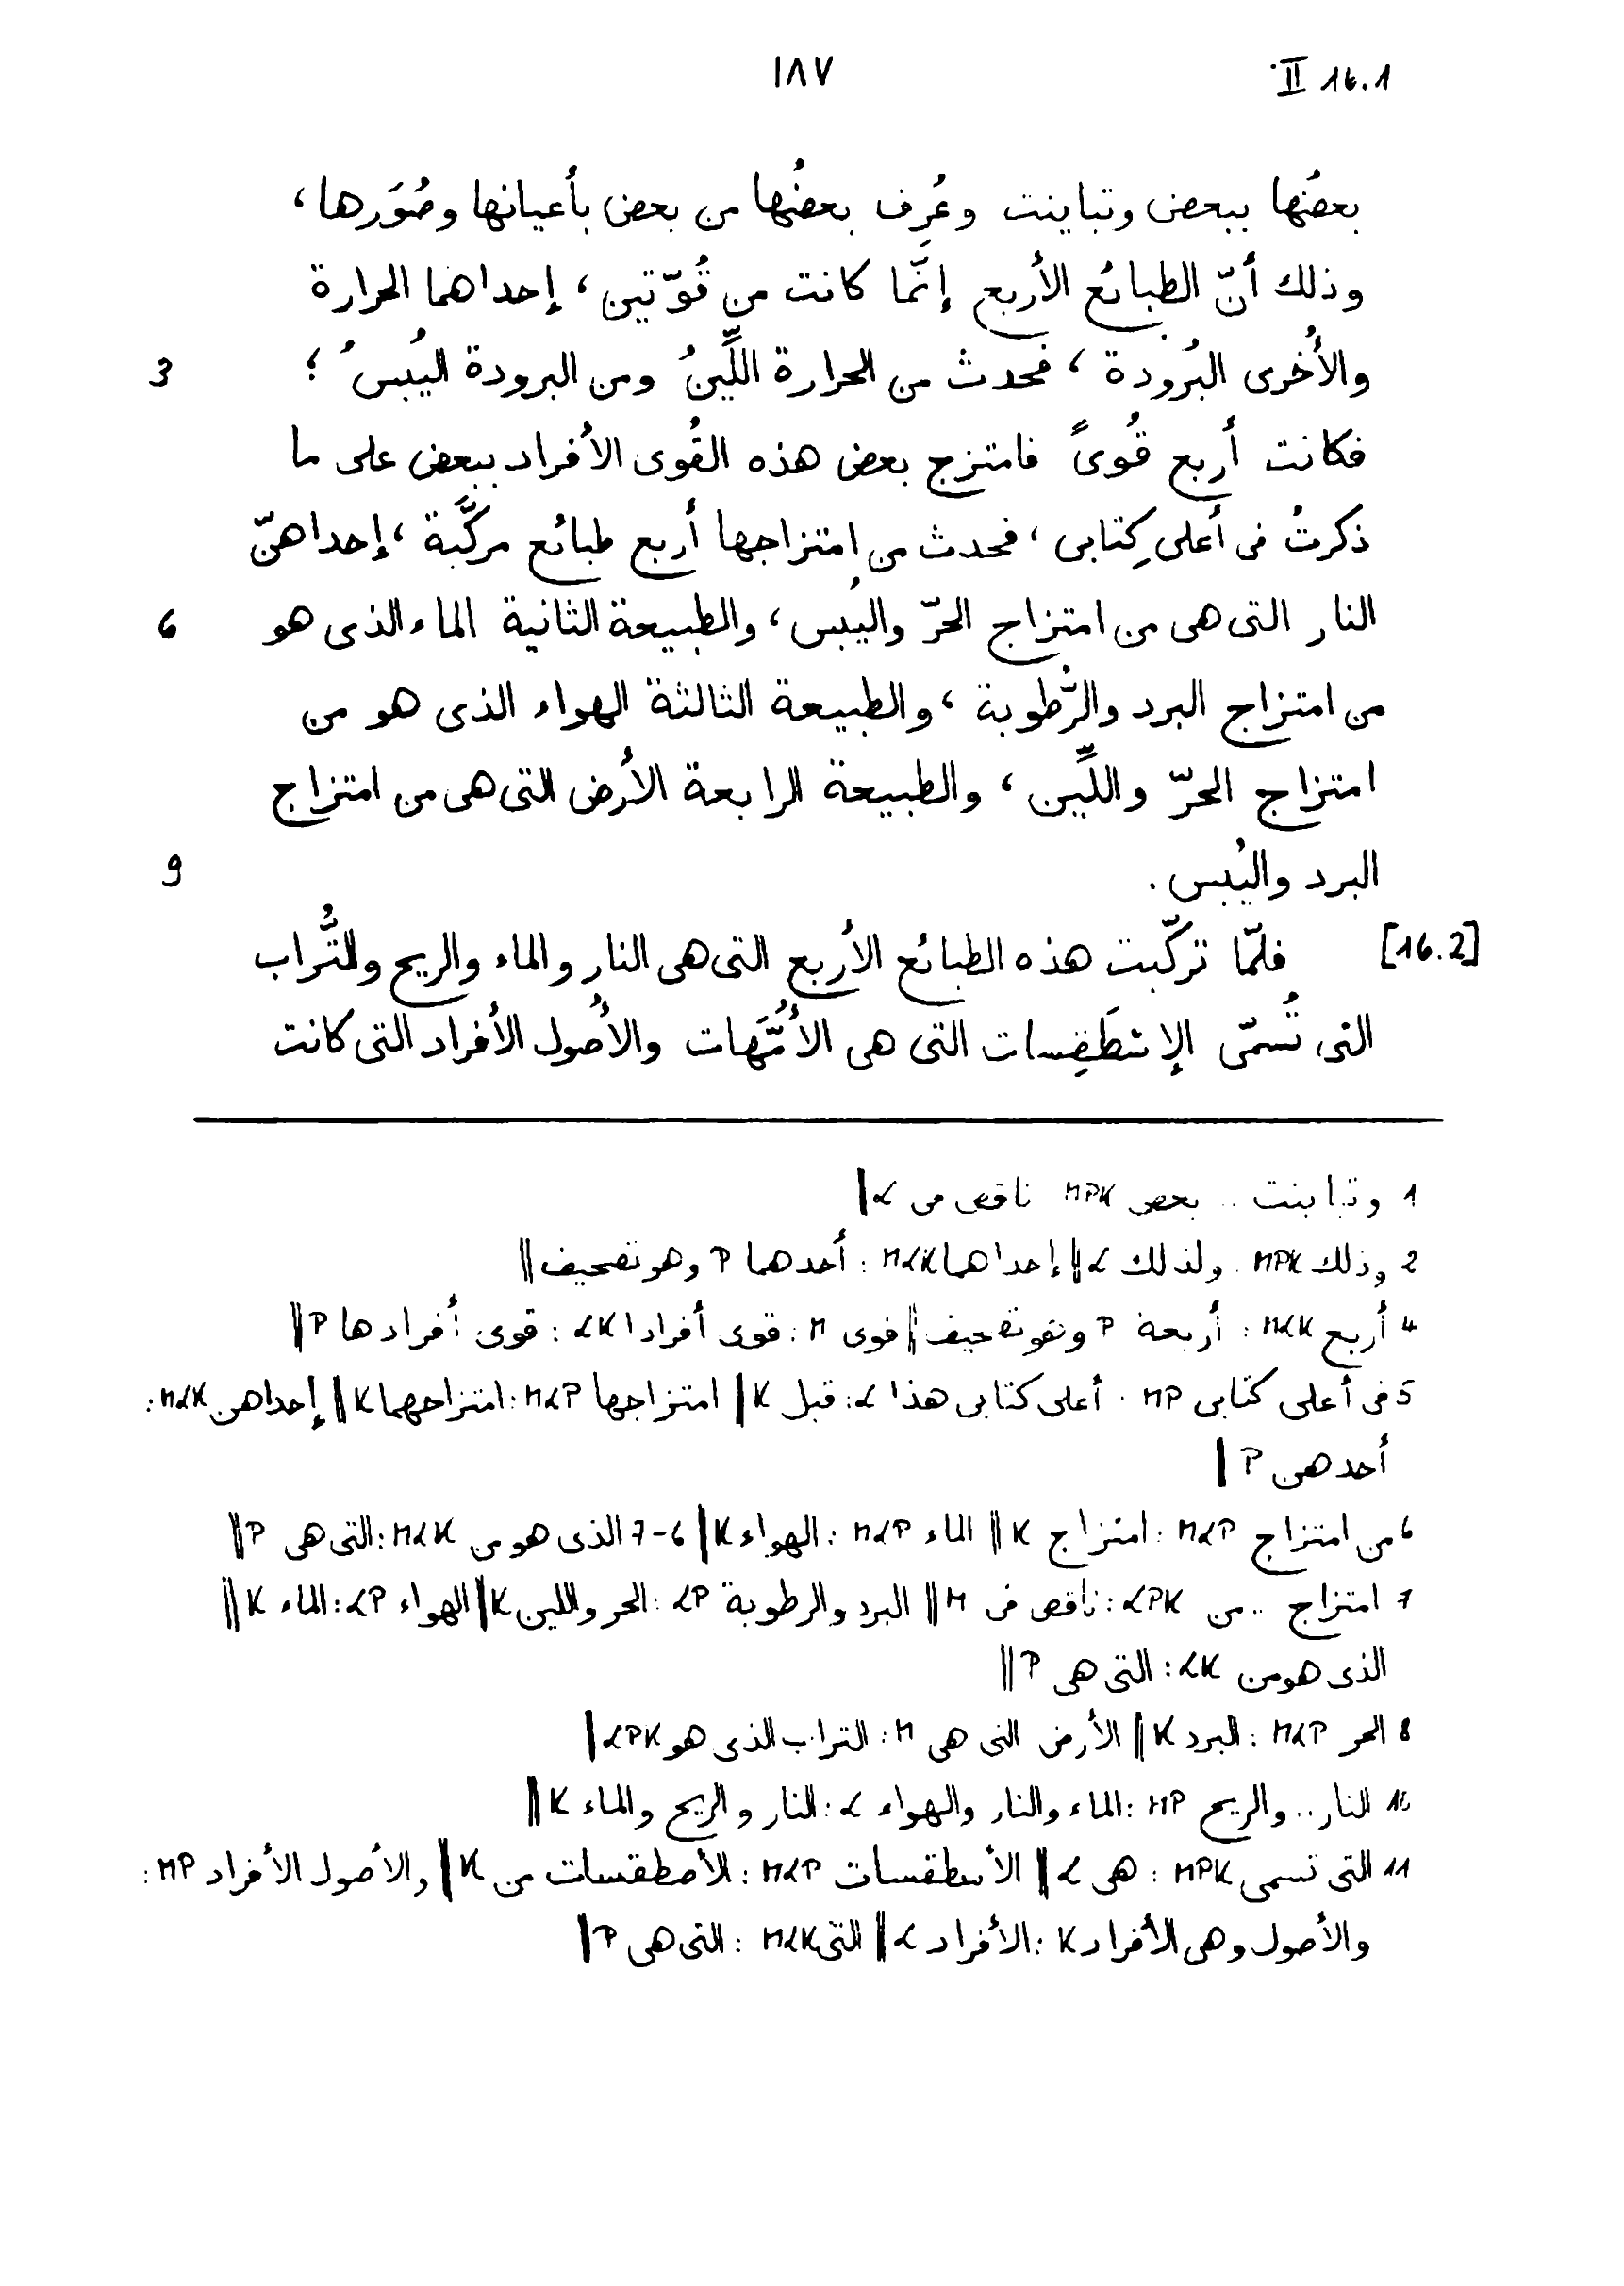 ١٨٧
II 16.1
بعضُها ببعض وتباينت وعُرِف بعضُها من بعض بأعيانها وصُوَرها،
وذلك أنّ الطبائع الأربع إنّما كانت من قُوّتين، إحداهما الحرارة
والأُخرى البُرودة، فحدث من الحرارة اللِّينُ ومن البرودة اليُبسُ؛
3
فكانت أربع قُوىً فامتزج بعض هذه القُوى الأفراد ببعض على ما
ذكرتُ فى أعلى كِتابى، فحدث من امتزاجها أربع طبائع مركَّبة، إحداهنّ
النار التى هى من امتزاج الحرّ واليُبس، والطبيعة الثانية الماء الذى هو
6
من امتزاج البرد والرُّطوبة، والطبيعة الثالثة الهواء الذى هو من
امتزاج الحرّ واللِّين، والطبيعة الرابعة الأرض التى هى من امتزاج
البرد واليُبس.
9
[16.2] فلمّا تركّبت هذه الطبائع الأربع التى هى النار والماء والريح والتُّراب
التى تُسمّى الإسْطَقِسات التى هى الأُمَّهات والأُصول الأفراد التى كانت
1 وتباينت .. بعض MPK ناقص من L ‖
2 وذلك MPK : ولذلك L ‖ إحداهما MLK : أحدهما P وهو تصحيف ‖
4 أربع MLK : أربعة P وهو تصحيف ‖ قوى M : قوى أفرادا LK : قوى أفرادها P ‖
5 فى أعلى كتابى MP : أعلى كتابى هذا L : قبل K ‖ امتزاجها MLP : امتزاجهما K ‖ إحداهن MLK :
أحدهن P ‖
6 من امتزاج MLP : امتزاج K ‖ الماء MLP : الهواء K ‖ 6-7 الذى هو من MLK : التى هى P ‖
7 امتزاج .. من LPK : ناقص فى M ‖ البرد والرطوبة LP : الحر واللين K ‖ الهواء LP : الماء K ‖
الذى هو من LK : التى هى P ‖
8 الحر MLP : البرد K ‖ الأرض التى هى M : التراب الذى هو LPK ‖
10 النار .. والريح MP : الماء والنار والهواء L : النار والريح والماء K ‖
11 التى تسمى MPK : هى L ‖ الأسطقسات MLP : الأصطقسات من K ‖ والأصول الأفراد MP :
والأصول وهى الأفراد K : الأفراد L ‖ التى MLK : التى هى P ‖